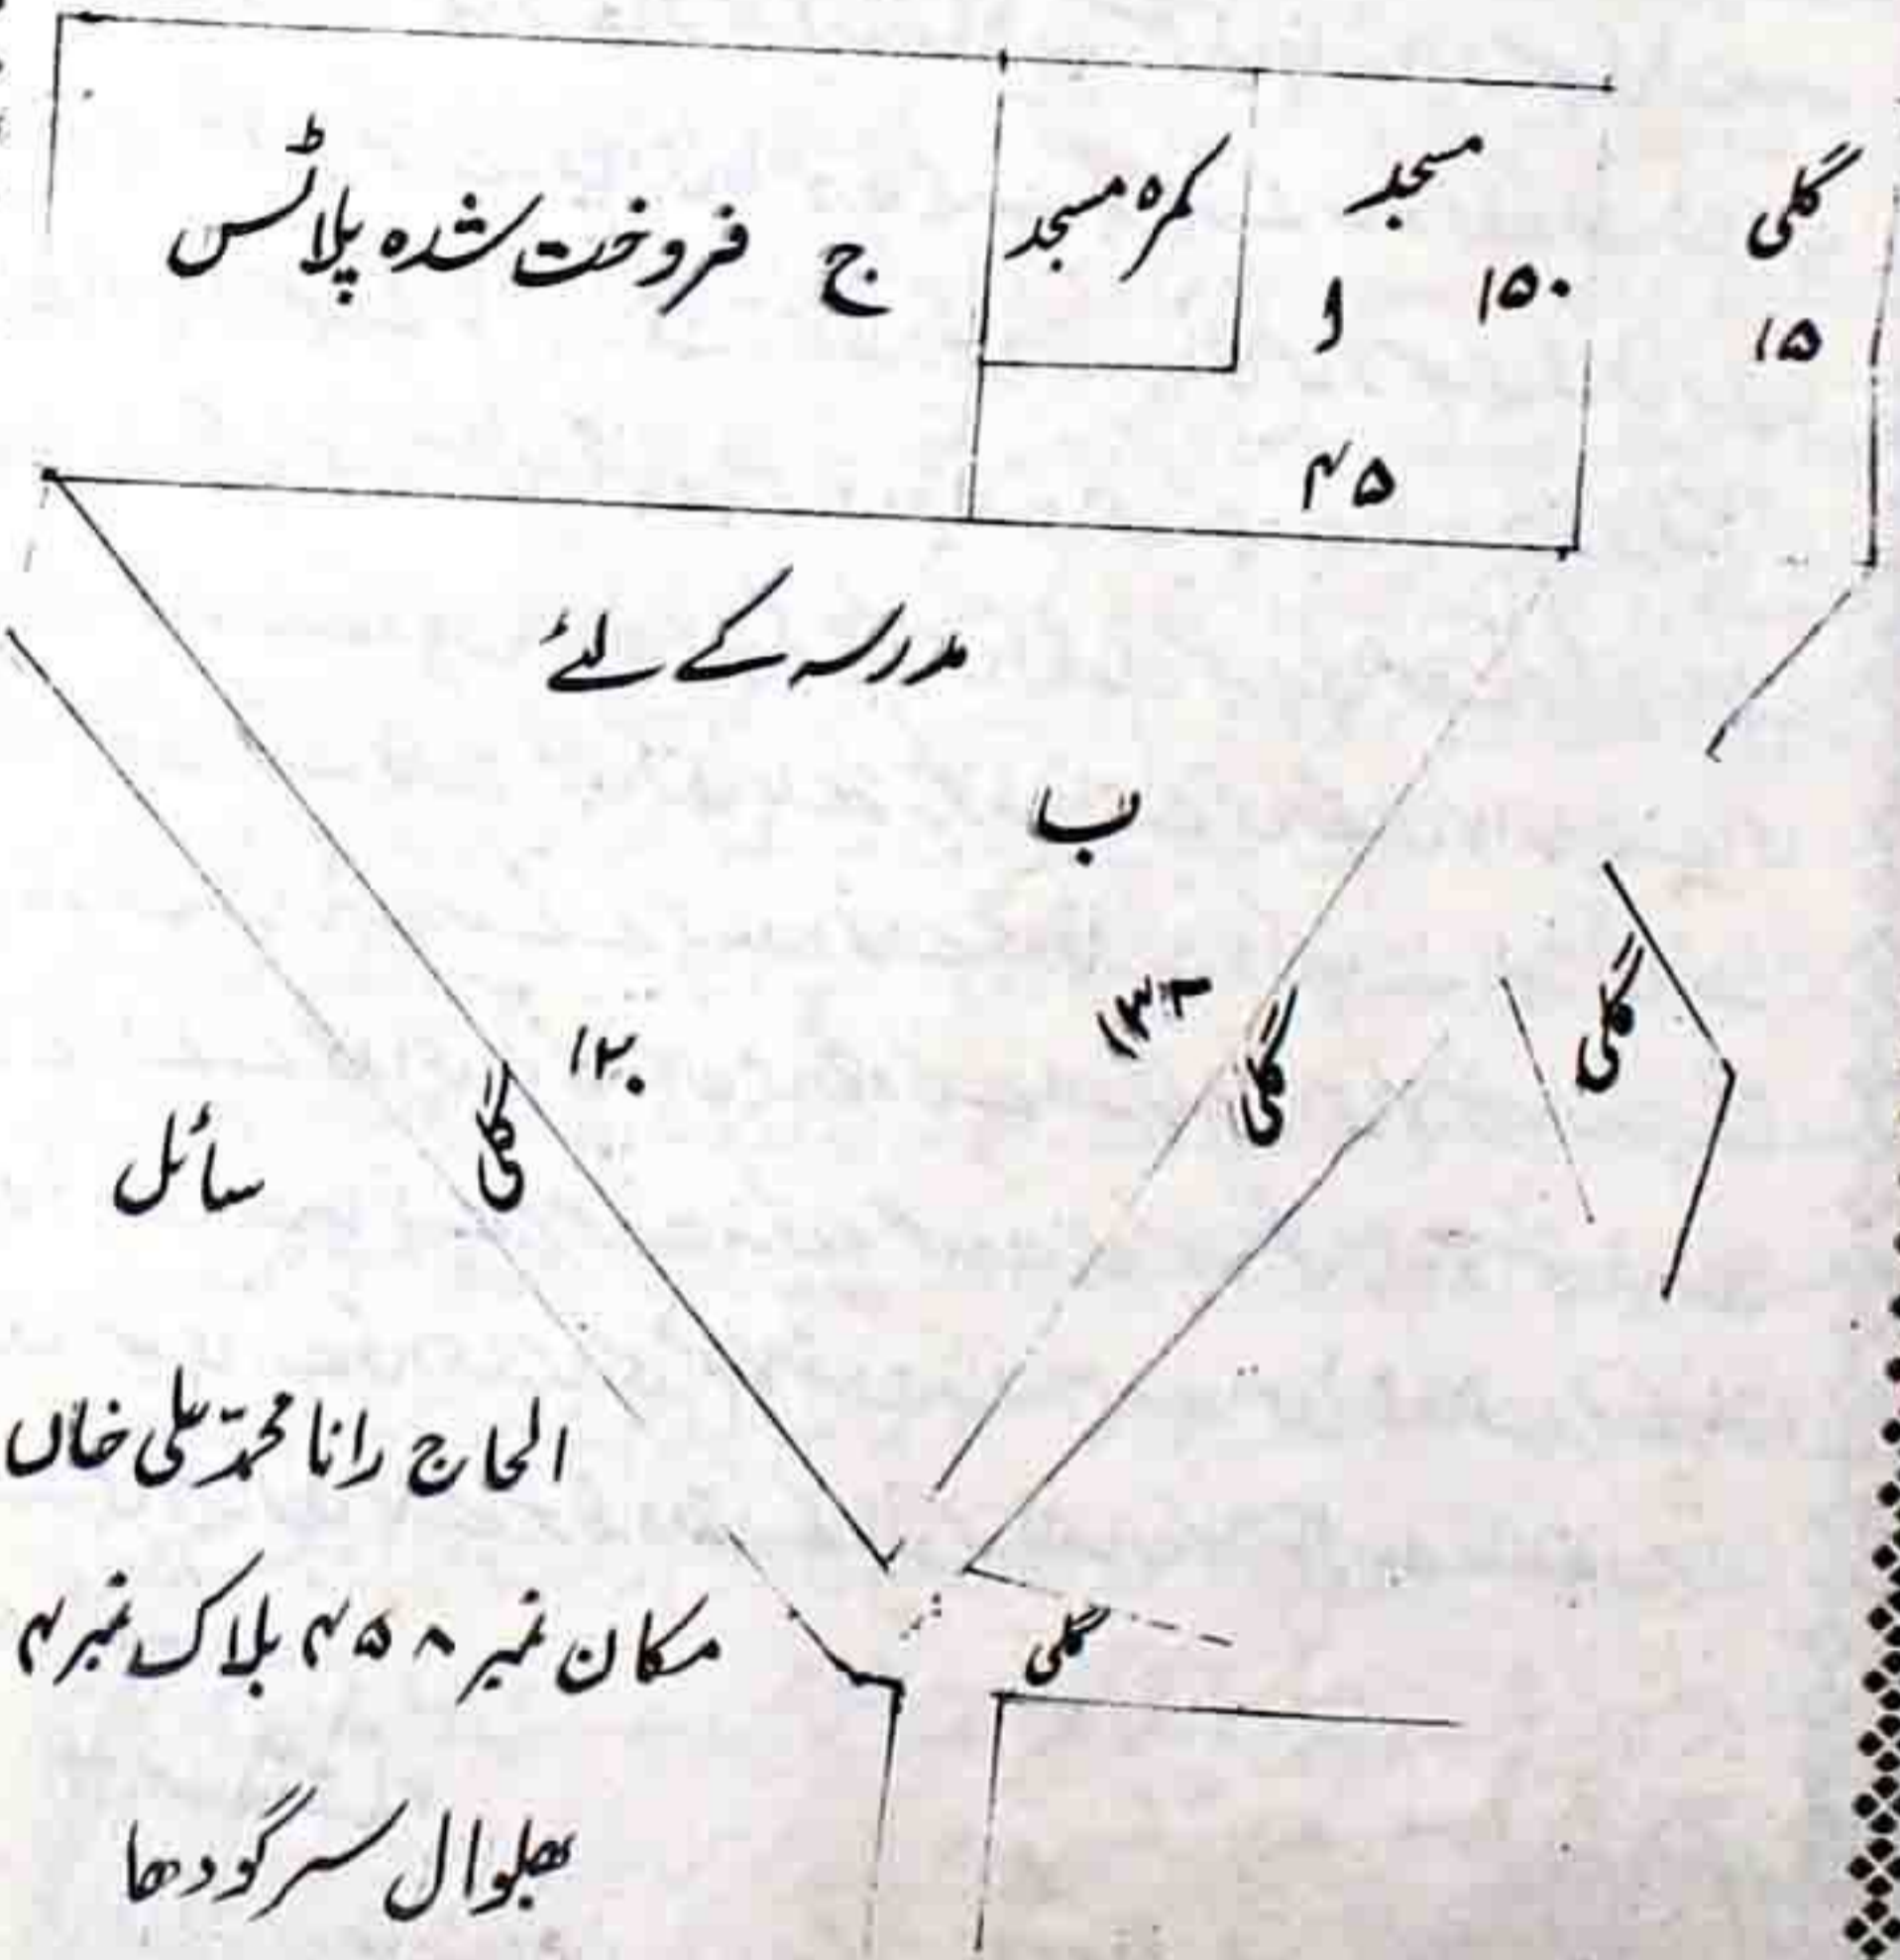 گلی
۱۵
مسجد
ا
۱۵۰
۴۵
کمرہ مسجد
ج فروخت شدہ پلاٹس
مدرسہ کے لئے
ب
گلی
گلی
گلی
سائل
الحاج رانا محمد علی خاں
مکان نمبر ۴۵۸ بلاک نمبر ۴
گلی
بھلوال سرگودھا